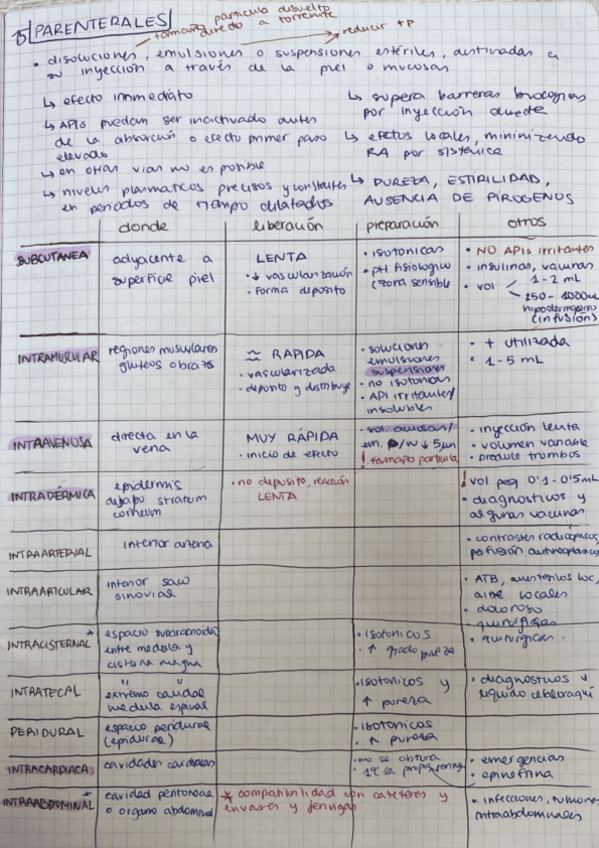 partícula disuelta
tamaño directo a torrente
→ reducir tP
5) PARENTERALES
• disoluciones, emulsiones o suspensiones estériles, destinadas a
su inyección a través de la piel o mucosas
↳ efecto inmediato
↳ APIs puedan ser inactivado antes
de la absorción o efecto primer paso
elevado
↳ en otras vías no es posible
↳ niveles plasmaticos precisos y constantes
en periodos de tiempo dilatados
↳ supera barreras biologicas
por inyección directa
↳ efectos locales, minimizando
RA por sistémica
↳ PUREZA, ESTIRILIDAD,
AUSENCIA DE PIROGENOS
donde liberación preparación otros
SUBCUTANEA
adyacente a
superficie piel
LENTA
• ↓ vascularización
• forma deposito
• isotonicas
• pH fisiologico
(zona sensible
• NO APIs irritantes
• insulinas, vacunas
• vol 1-2 mL
250-1000mL
(infusión)
INTRAMUSCULAR
regiones musculares
gluteos o brazos
≈ RAPIDA
• vascularizada
• deposito y distribuye
• soluciones
emulsiones
suspensiones
• no isotonicas
• API irritantes/
insolubles
• + utilizada
• 1-5 mL
INTRAVENOSA
directa en la
vena
MUY RÁPIDA
• inicio de efecto
• sol. acuosas/
em. P/W ↓ 5µm
! tamaño particula
• inyección lenta
• volumen variable
• produce trombos
INTRADÉRMICA
epidermis
debajo stratum
corneum
• no deposito, reacción
LENTA
! vol peq 0'1-0'5mL
• diagnosticos y
algunas vacunas
INTRAARTERIAL
interior arteria
• contrastes radiopacos,
INTRAARTICULAR
interior saco
sinovial
• ATB, anestesicos loc,
locales
• doloroso
• quirúrgicas
INTRACISTERNAL *
espacio subaracnoideo
entre medula y
cisterna magna
• isotonicos
• ↑ grado pureza
• quirúrgicas
INTRATECAL
" "
extremo caudal
medula espinal
• isotonicos y
↑ pureza
• diagnosticos y
liquido
PERIDURAL
espacio peridural
(epidural)
• isotonicos
• ↑ pureza
INTRACARDIACA
cavidades cardiacas
• no se obtura
• emergencias
• epinefrina
INTRAABDOMINAL *
cavidad peritoneal
o organo abdominal
* compatibilidad con cateteres y
envases y jeringas
• infecciones, tumores
intraabdominales